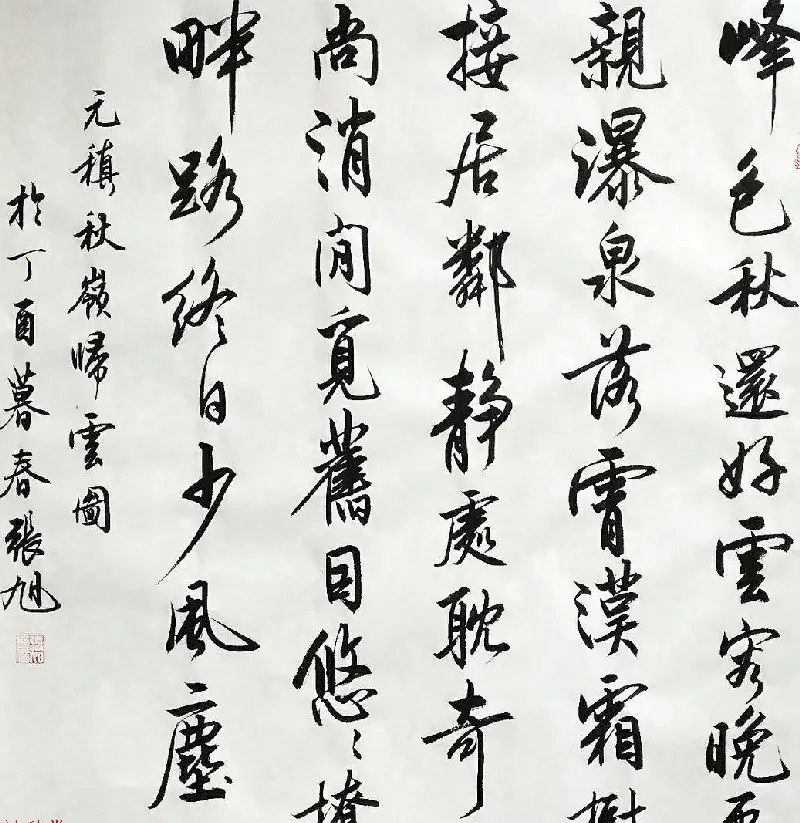 峰色秋還好雲容晚更
親瀑泉落霄漢霜樹
接居鄰靜處耽奇
尚消閒覓舊因悠悠橋
畔路終日少風塵
元稹秋嶺歸雲圖
於丁酉暮春張旭